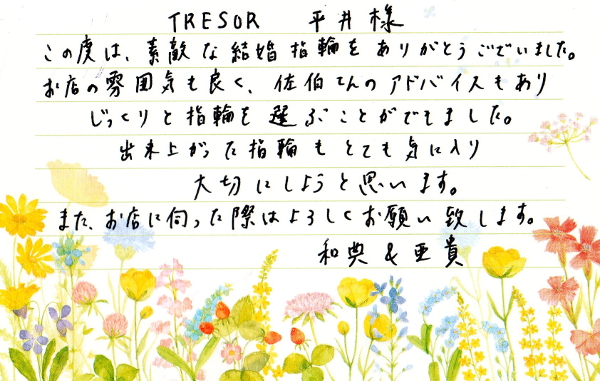 TRESOR 平井様
この度は、素敵な結婚指輪をありがとうございました。
お店の雰囲気も良く、佐伯さんのアドバイスもあり
じっくりと指輪を選ぶことができました。
出来上がった指輪もとても気に入り
大切にしようと思います。
また、お店に伺った際はよろしくお願い致します。
和典 & 亜貴